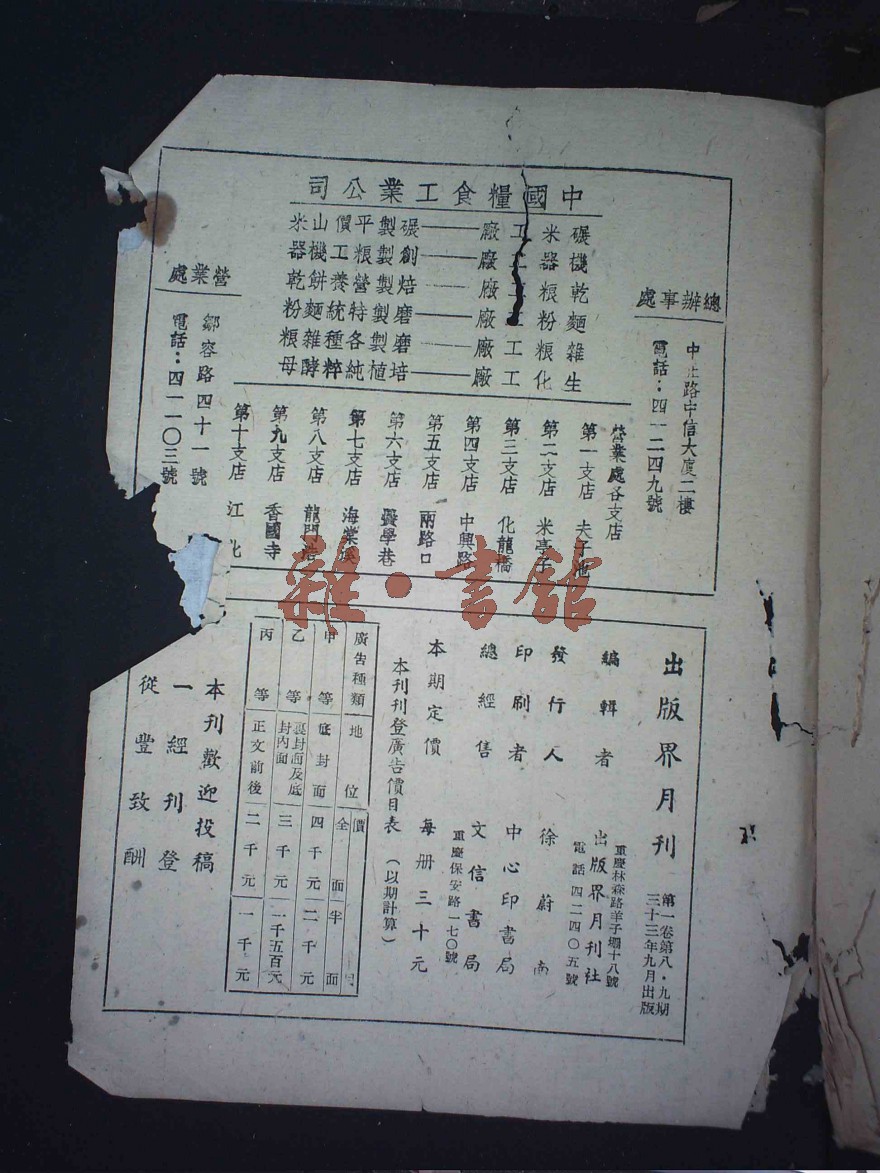 中國糧食工業公司
碾米工廠——碾製平價山米
機器工廠——創製粮工機器
乾粮工廠——焙製營養餅乾
麵粉工廠——磨製特統麵粉
雜粮工廠——磨製各種雜粮
生化工廠——培植純粹酵母
總辦事處
中正路中信大廈二樓
電話：四一二四九號
營業處各支店
第一支店 夫子池
第二支店 米亭子
第三支店 化龍橋
第四支店 中興路
第五支店 兩路口
第六支店 學巷
第七支店 海棠溪
第八支店 龍門浩
第九支店 香國寺
第十支店 江北
營業處
鄒容路四十一號
電話：四一一〇三號
雜·書館
出版界月刊
第一卷第八·九期
三十三年九月出版
編輯者 出版界月刊社
重慶林森路羊子壩十八號
電話四二四〇五號
發行人 徐蔚南
印刷者 中心印書局
總經售 文信書局
重慶保安路一七〇號
本期定價 每册三十元
本刊刊登廣告價目表（以期計算）
廣告種類 地位 價目
全面 半面
甲等 底封面 四千元 二千元
乙等 裏封面及底封內面 三千元 一千五百元
丙等 正文前後 二千元 一千元
本刊歡迎投稿
一經刊登
從豐致酬